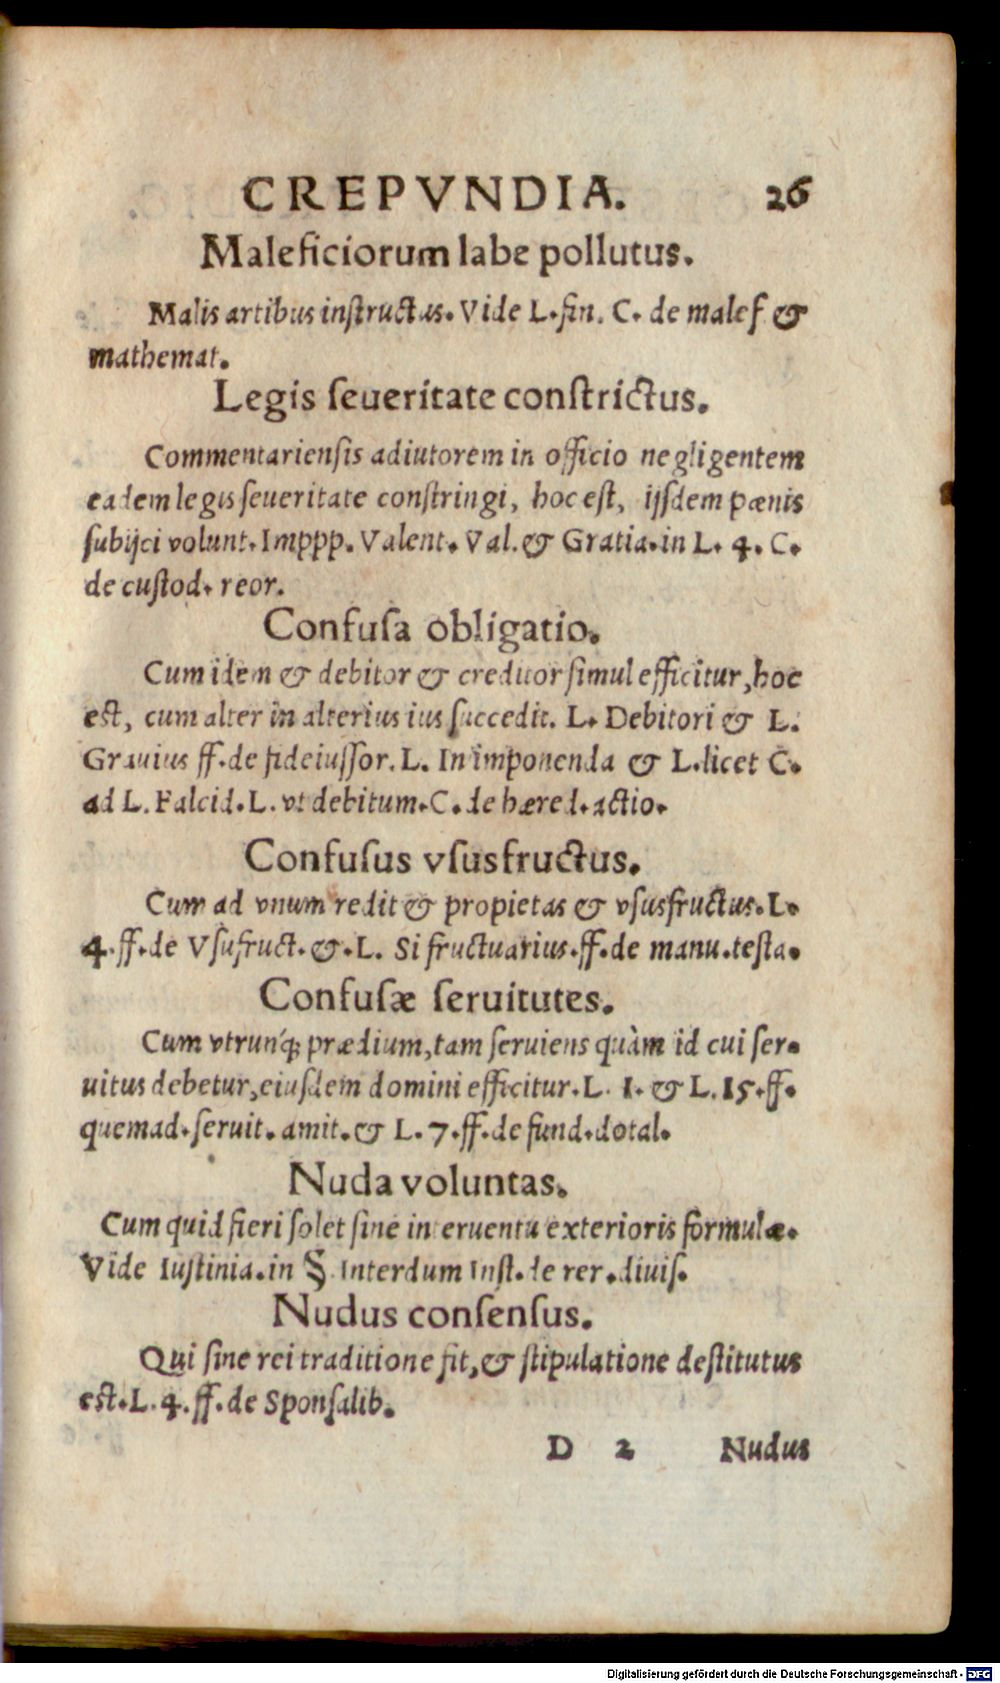 CREPVNDIA. 26
Maleficiorum labe pollutus.
Malis artibus instructus. Vide L. fin. C. de malef &
mathemat.
Legis ſeueritate conſtrictus.
Commentarienſis adiutorem in officio negligentem
eadem legis ſeueritate conſtringi, hoc eſt, ijſdem pœnis
ſubijci volunt. Imppp. Valent. Val. & Gratia. in L. 4. C.
de cuſtod. reor.
Confuſa obligatio.
Cum idem & debitor & creditor ſimul efficitur, hoc
eſt, cum alter in alterius ius ſuccedit. L. Debitori & L.
Grauius ff. de fideiuſſor. L. In imponenda & L. licet C.
ad L. Falcid. L. vt debitum. C. de hæred. actio.
Confuſus vſusfructus.
Cum ad vnum redit & propietas & vſusfructus. L.
4. ff. de Vſufruct. &. L. Si fructuarius. ff. de manu. teſta.
Confuſæ ſeruitutes.
Cum vtrunq́; prædium, tam ſeruiens quàm id cui ſer-
uitus debetur, eiuſdem domini efficitur. L. 1. & L. 15. ff.
quemad. ſeruit. amit. & L. 7. ff. de fund. dotal.
Nuda voluntas.
Cum quid fieri ſolet ſine interuentu exterioris formulæ.
Vide Iuſtinia. in §. Interdum Inſt. de rer. diuiſ.
Nudus conſenſus.
Qui ſine rei traditione fit, & ſtipulatione deſtitutus
eſt. L. 4. ff. de Sponſalib.
D 2 Nudus
Digitalisierung gefördert durch die Deutsche Forschungsgemeinschaft - DFG